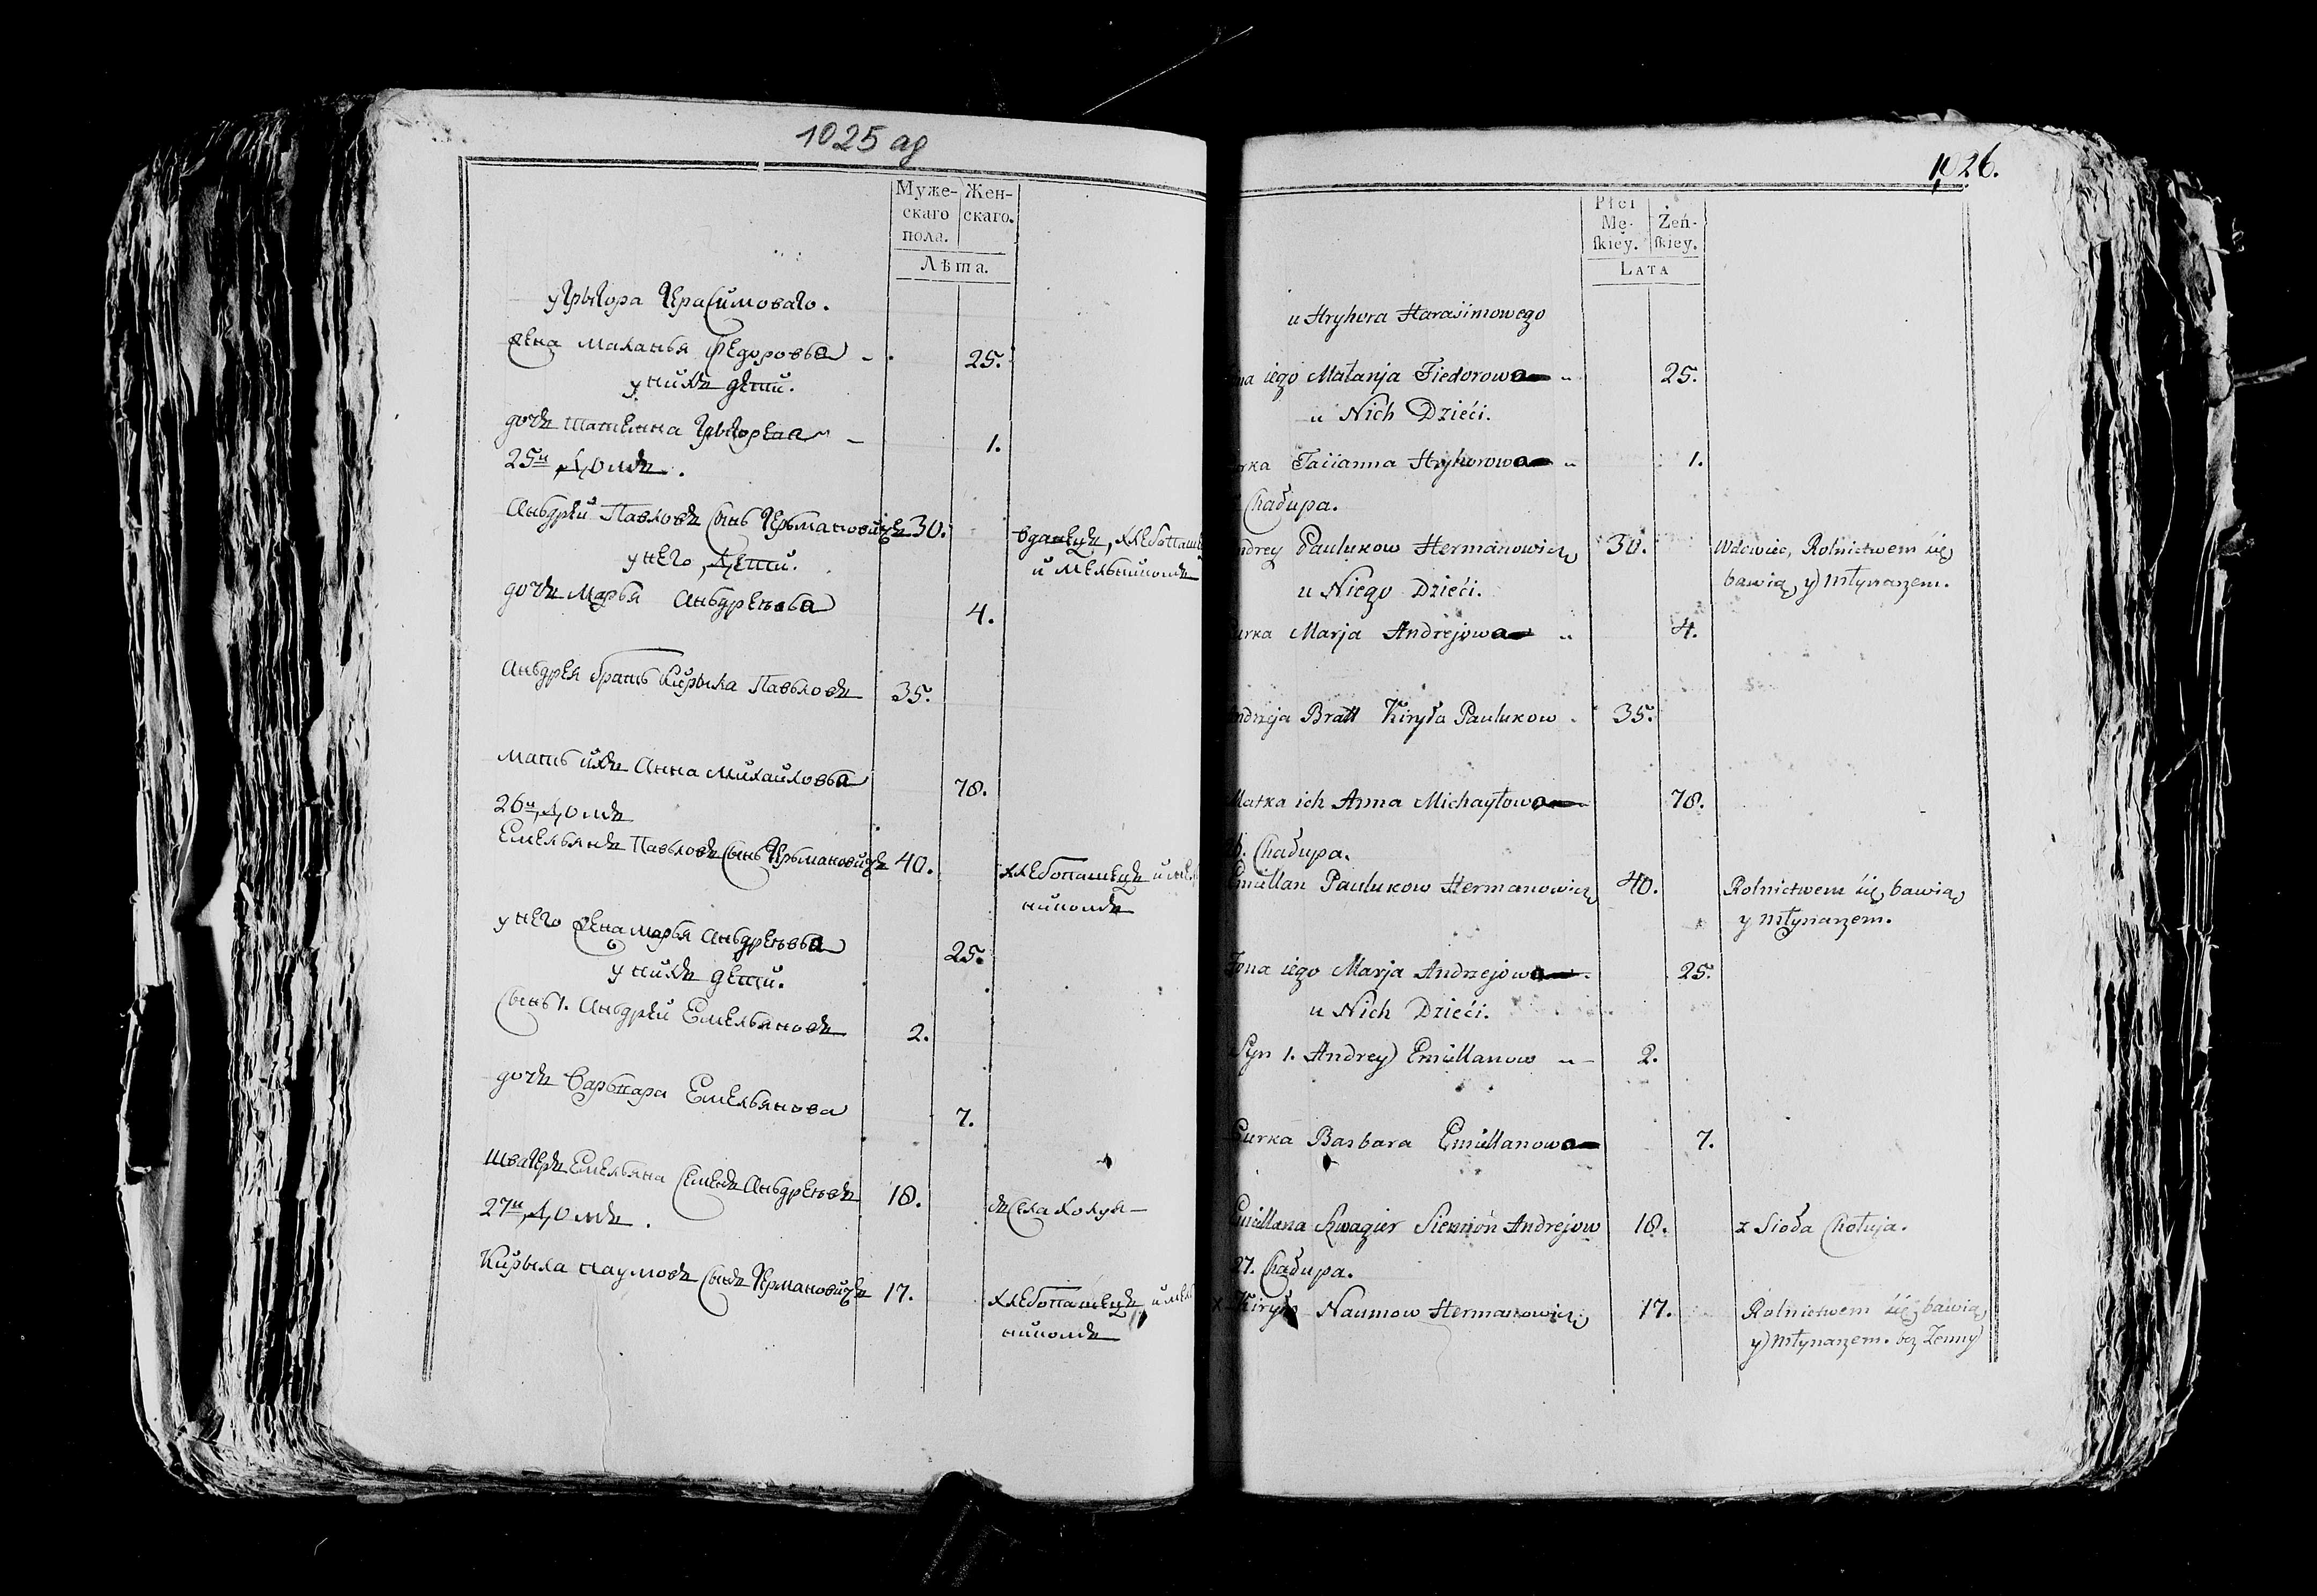 1025 ag
Муже- Жен-
скаго скаго.
пола.
Лѣта.
у Грыгора Герасимоваго.
Жена Маланья Федоровъа 25.
у нихъ дети.
дочъ Татьянна 1.
25й Домъ.
Аньдрей Павловъ сынь Герьмановичъ 30. вдавецъ, хлебопаш
у него Дети. и мельникомъ
дочъ Марья Аньдреевьа 4.
Аньдрея брать Кирыла Павьловъ 35.
мать ихъ Анна Михайловьа 78.
26й Домъ
Емельянъ Павьловъ сынь Герьмановичъ 40. хлебопашецъ и мел
никомъ
у него Жена Марья Аньдреевьа 25.
у нихъ дети.
сынь 1. Аньдрей Емельяновъ 2.
дочъ Варьвара Емельянова 7.
швагеръ Емельяна Семенъ Аньдреевъ 18. села Холуя
27й Домъ.
Кирыла Наумовъ сынъ Германовичъ 17. хлебопашецъ и мел
никомъ
1026.
Płci
Mę- Żeń-
ſkiey. ſkiey.
LATA
u Hryhora Harasimowego
na iego Małanja Fiedorowa 25.
u Nich Dzieći.
rka Taciianna Hryhorowa 1.
Chałupa.
ndrey Paulukow Hermanowicz 30. Wdowiec, Rolnictwem się
u Niego Dzieći. bawią y Młynarzem.
urka Marja Andrzejowa 4.
ndrzeja Bratt Kiryła Paulukow 35.
Matka ich Anna Michayłowa 78.
26. Chałupa.
Emillan Paulukow Hermanowicz 40. Rolnictwem się bawią
y Młynarzem.
Żona iego Marja Andrzejowa 25.
u Nich Dzieći.
Syn 1. Andrey Emillanow 2.
Curka Barbara Emillanowa 7.
Emillana Szwagier Siemión Andrejow 18. z Sioła Chołuja.
27. Chałupa.
x Kirył Naumow Hermanowicz 17. Rolnictwem się bawią
y Młynarzem. bez Żenny